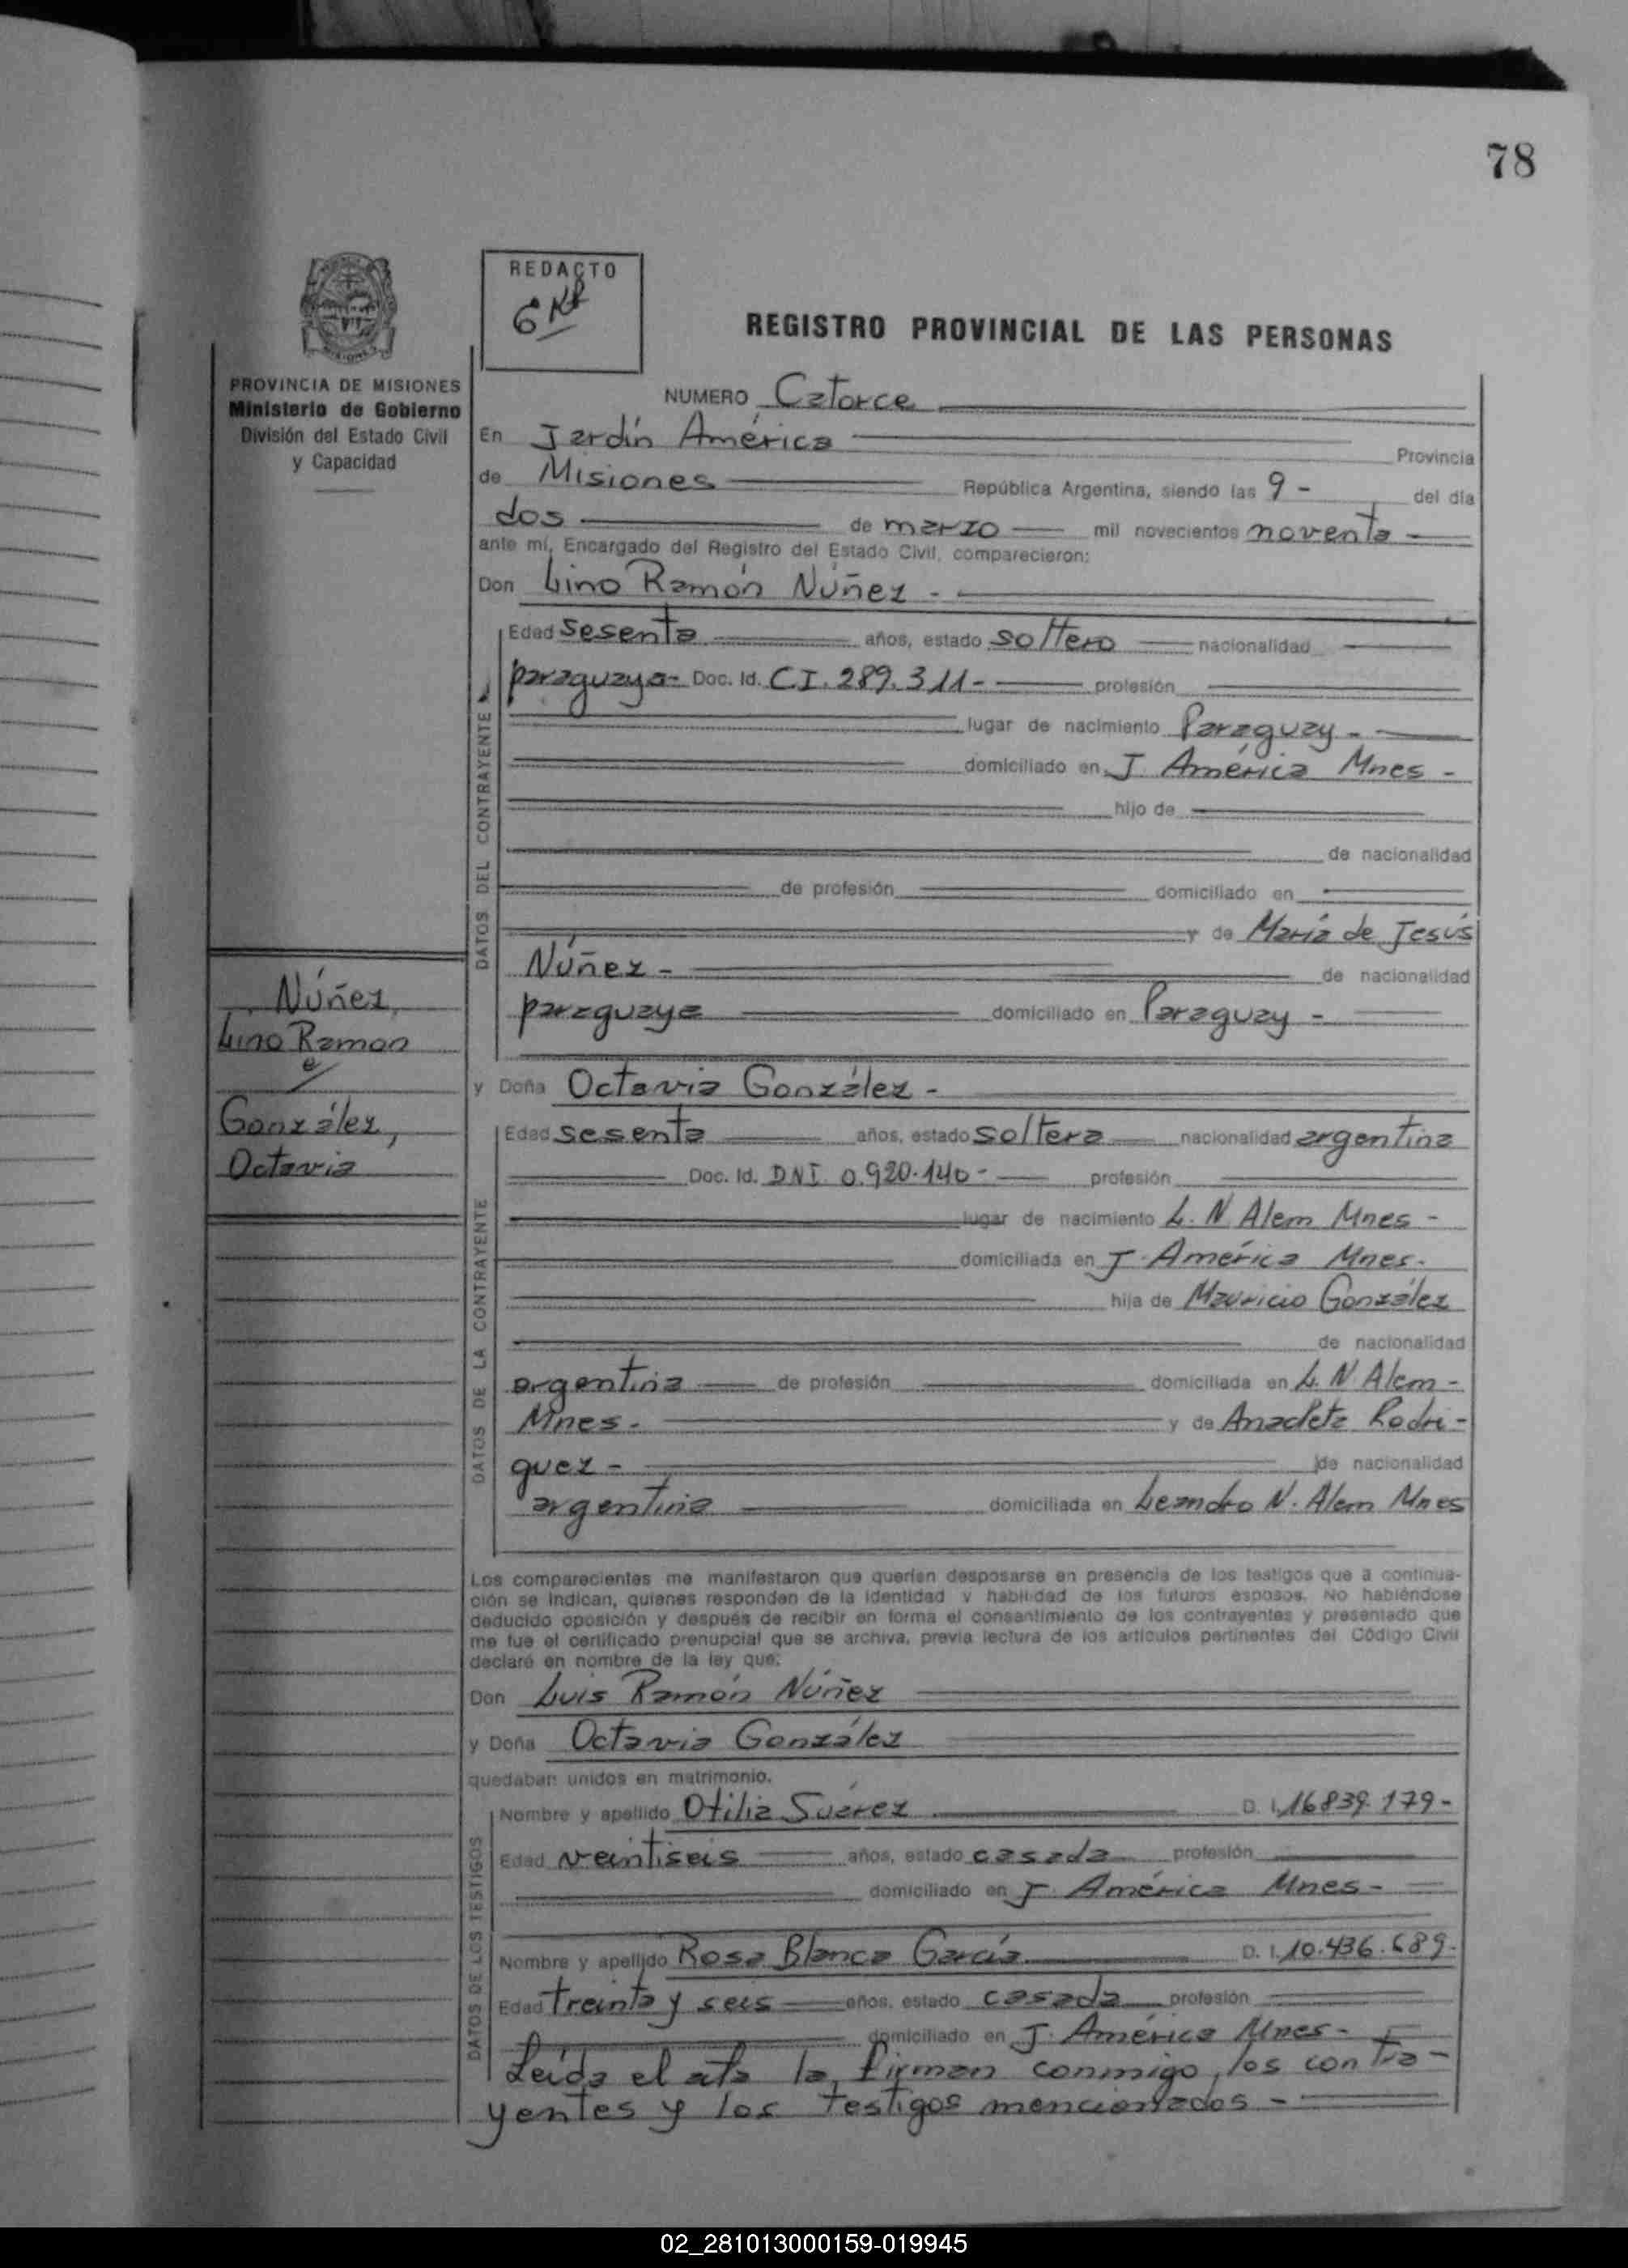 78
REDACTO
REGISTRO PROVINCIAL DE LAS PERSONAS
MISIONES
PROVINCIA DE MISIONES
Ministerio de Gobierno
División del Estado Civil
y Capacidad
NUMERO Catorce
En Jardín América
Provincia
de Misiones República Argentina, siendo las 9 - del día
dos de marzo mil novecientos noventa
ante mí, Encargado del Registro del Estado Civil, comparecieron:
Don Lino Ramón Núñez -
DATOS DEL CONTRAYENTE
Edad sesenta años, estado soltero nacionalidad
paraguaya - Doc. Id. C.I. 289.311 - profesión
lugar de nacimiento Paraguay -
domiciliado en J. América Mnes -
hijo de
de nacionalidad
de profesión domiciliado en
y de María de Jesús
Núñez - de nacionalidad
paraguaya domiciliado en Paraguay -
Núñez,
Lino Ramon
e/
González,
Octavia
y Doña Octavia González -
DATOS DE LA CONTRAYENTE
Edad sesenta años, estado soltera nacionalidad argentina
Doc. Id. DNI. 0.920.140 - profesión
lugar de nacimiento L. N. Alem Mnes -
domiciliada en J. América Mnes.
hija de Mauricio González
de nacionalidad
argentina de profesión domiciliada en L. N. Alem -
Mnes - y de Anacleta Rodri-
guez - de nacionalidad
argentina domiciliada en Leandro N. Alem Mnes
Los comparecientes me manifestaron que querían desposarse en presencia de los testigos que a continua-
ción se indican, quienes responden de la identidad y habilidad de los futuros esposos. No habiéndose
deducido oposición y después de recibir en forma el consentimiento de los contrayentes y presentado que
me fue el certificado prenupcial que se archiva, previa lectura de los artículos pertinentes del Código Civil
declaré en nombre de la ley que:
Don Luis Ramón Núñez
y Doña Octavia González
quedaban unidos en matrimonio.
DATOS DE LOS TESTIGOS
Nombre y apellido Otilia Suárez D. I. 16839.179 -
Edad veintiseis años, estado casada profesión
domiciliado en J. América Mnes -
Nombre y apellido Rosa Blanca García D. I. 10.436.689.
Edad treinta y seis años, estado casada profesión
domiciliado en J. América Mnes -
Leída el acta la firman conmigo, los contra-
yentes y los testigos mencionados -
02_281013000159-019945